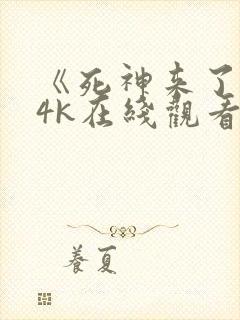 《死神来了
4K在线觀看
養夏